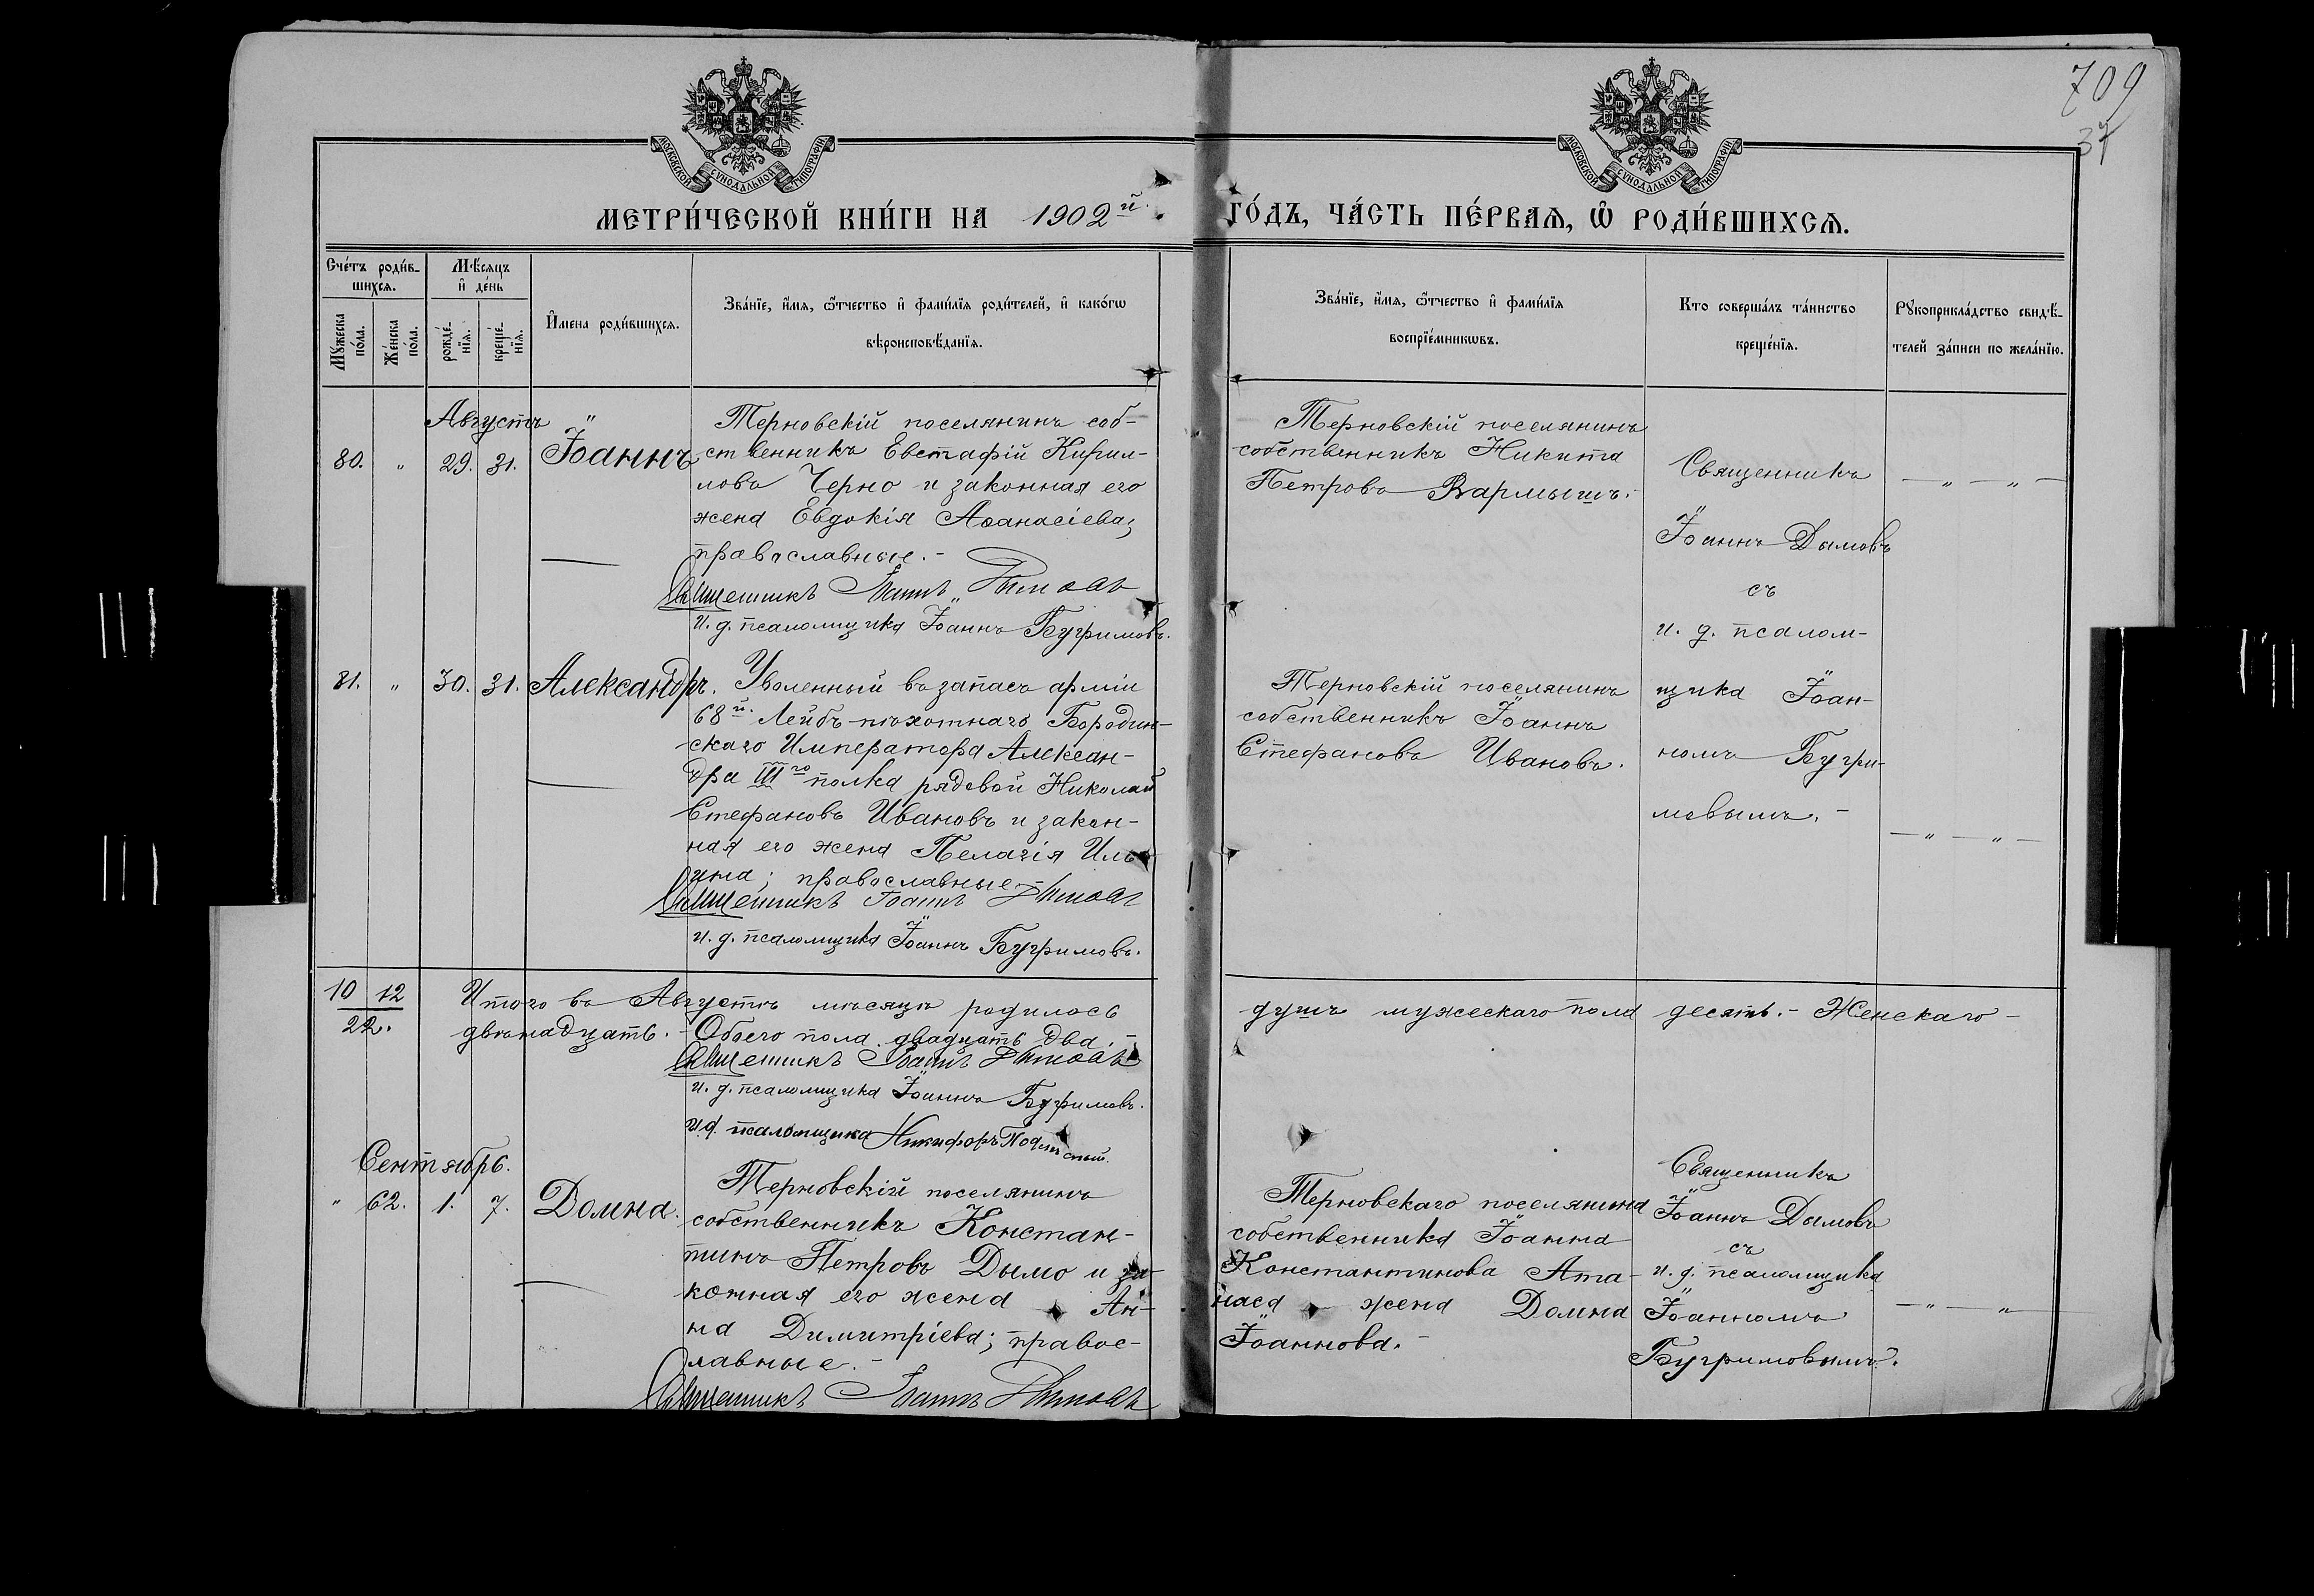 709
37
МОСКОВСКОЙ СѴНОДАЛЬНОЙ ТИПОГРАФІИ
МОСКОВСКОЙ СѴНОДАЛЬНОЙ ТИПОГРАФІИ
МЕТРИ́ЧЕСКОЙ КНИ́ГИ НА 1902й.
ГО́ДЪ, ЧА́СТЬ ПЕ́РВАѦ, Ѿ РОДИ́ВШИХСѦ.
Сче́тъ роди́в-
шихсѧ.
Мꙋ́жеска по́ла.
Же́нска по́ла.
Мѣ́сѧцъ
и҆ де́нь
рожде́-
нїѧ.
креще́-
нїѧ.
И҆мена роди́вшихсѧ.
Зва́нїе, и҆́мѧ, ѻ҆́тчество и҆ фами́лїѧ роди́телей, и҆ како́гѡ
вѣроисповѣ́данїѧ.
Зва́нїе, и҆́мѧ, ѻ҆́тчество и҆ фами́лїѧ
воспрїе́мникѡвъ.
Кто соверша́лъ та́инство
креще́нїѧ.
Рꙋкоприкла́дство свидѣ́-
телей за́писи по жела́нїю.
Августъ
80. " 29. 31. Іоаннъ
Терновскій поселянинъ соб-
ственникъ Евстафій Кирил-
ловъ Черно и законная его
жена Евдокія Аѳанасіева;
православные.-
Священникъ Іоаннъ Дымовъ
и. д. псаломщика Іоаннъ Бугримовъ.
Терновскій поселянинъ
собственникъ Никита
Петровъ Вармышъ.-
Священникъ
Іоаннъ Дымовъ
съ
и. д. псалом-
щика Іоан-
номъ Бугри-
мовымъ.-
— " — " —
81. " 30. 31. Александръ.
Уволенный въ запасъ арміи
68й. Лейбъ-пѣхотнаго Бородин-
скаго Императора Алексан-
дра IIIго полка рядовой Николай
Стефановъ Ивановъ и закон-
ная его жена Пелагія Иль-
ина; православные.-
Священникъ Іоаннъ Дымовъ
и. д. псаломщика Іоаннъ Бугримовъ.
Терновскій поселянинъ
собственникъ Іоаннъ
Стефановъ Ивановъ.
— " — " —
10 12
22.
Итого въ Августѣ мѣсяцѣ родилось душъ мужескаго пола десять.- Женскаго -
двѣнадцать.- Обоего пола двадцать два.-
Священникъ Іоаннъ Дымовъ
и. д. псаломщика Іоаннъ Бугримовъ.
и. д. псаломщика Никифоръ
Сентябрь.
" 62. 1. 7. Домна.
Терновскій поселянинъ
собственникъ Констан-
тинъ Петровъ Дымо и за-
конная его жена Ан-
на Димитріева; правос-
лавные.-
Священникъ Іоаннъ Дымовъ
Терновскаго поселянина
собственника Іоанна
Константинова Ата-
наса жена Домна
Іоаннова.-
Священникъ
Іоаннъ Дымовъ
съ
и. д. псаломщика
Іоанномъ
Бугримовымъ.
— " — "